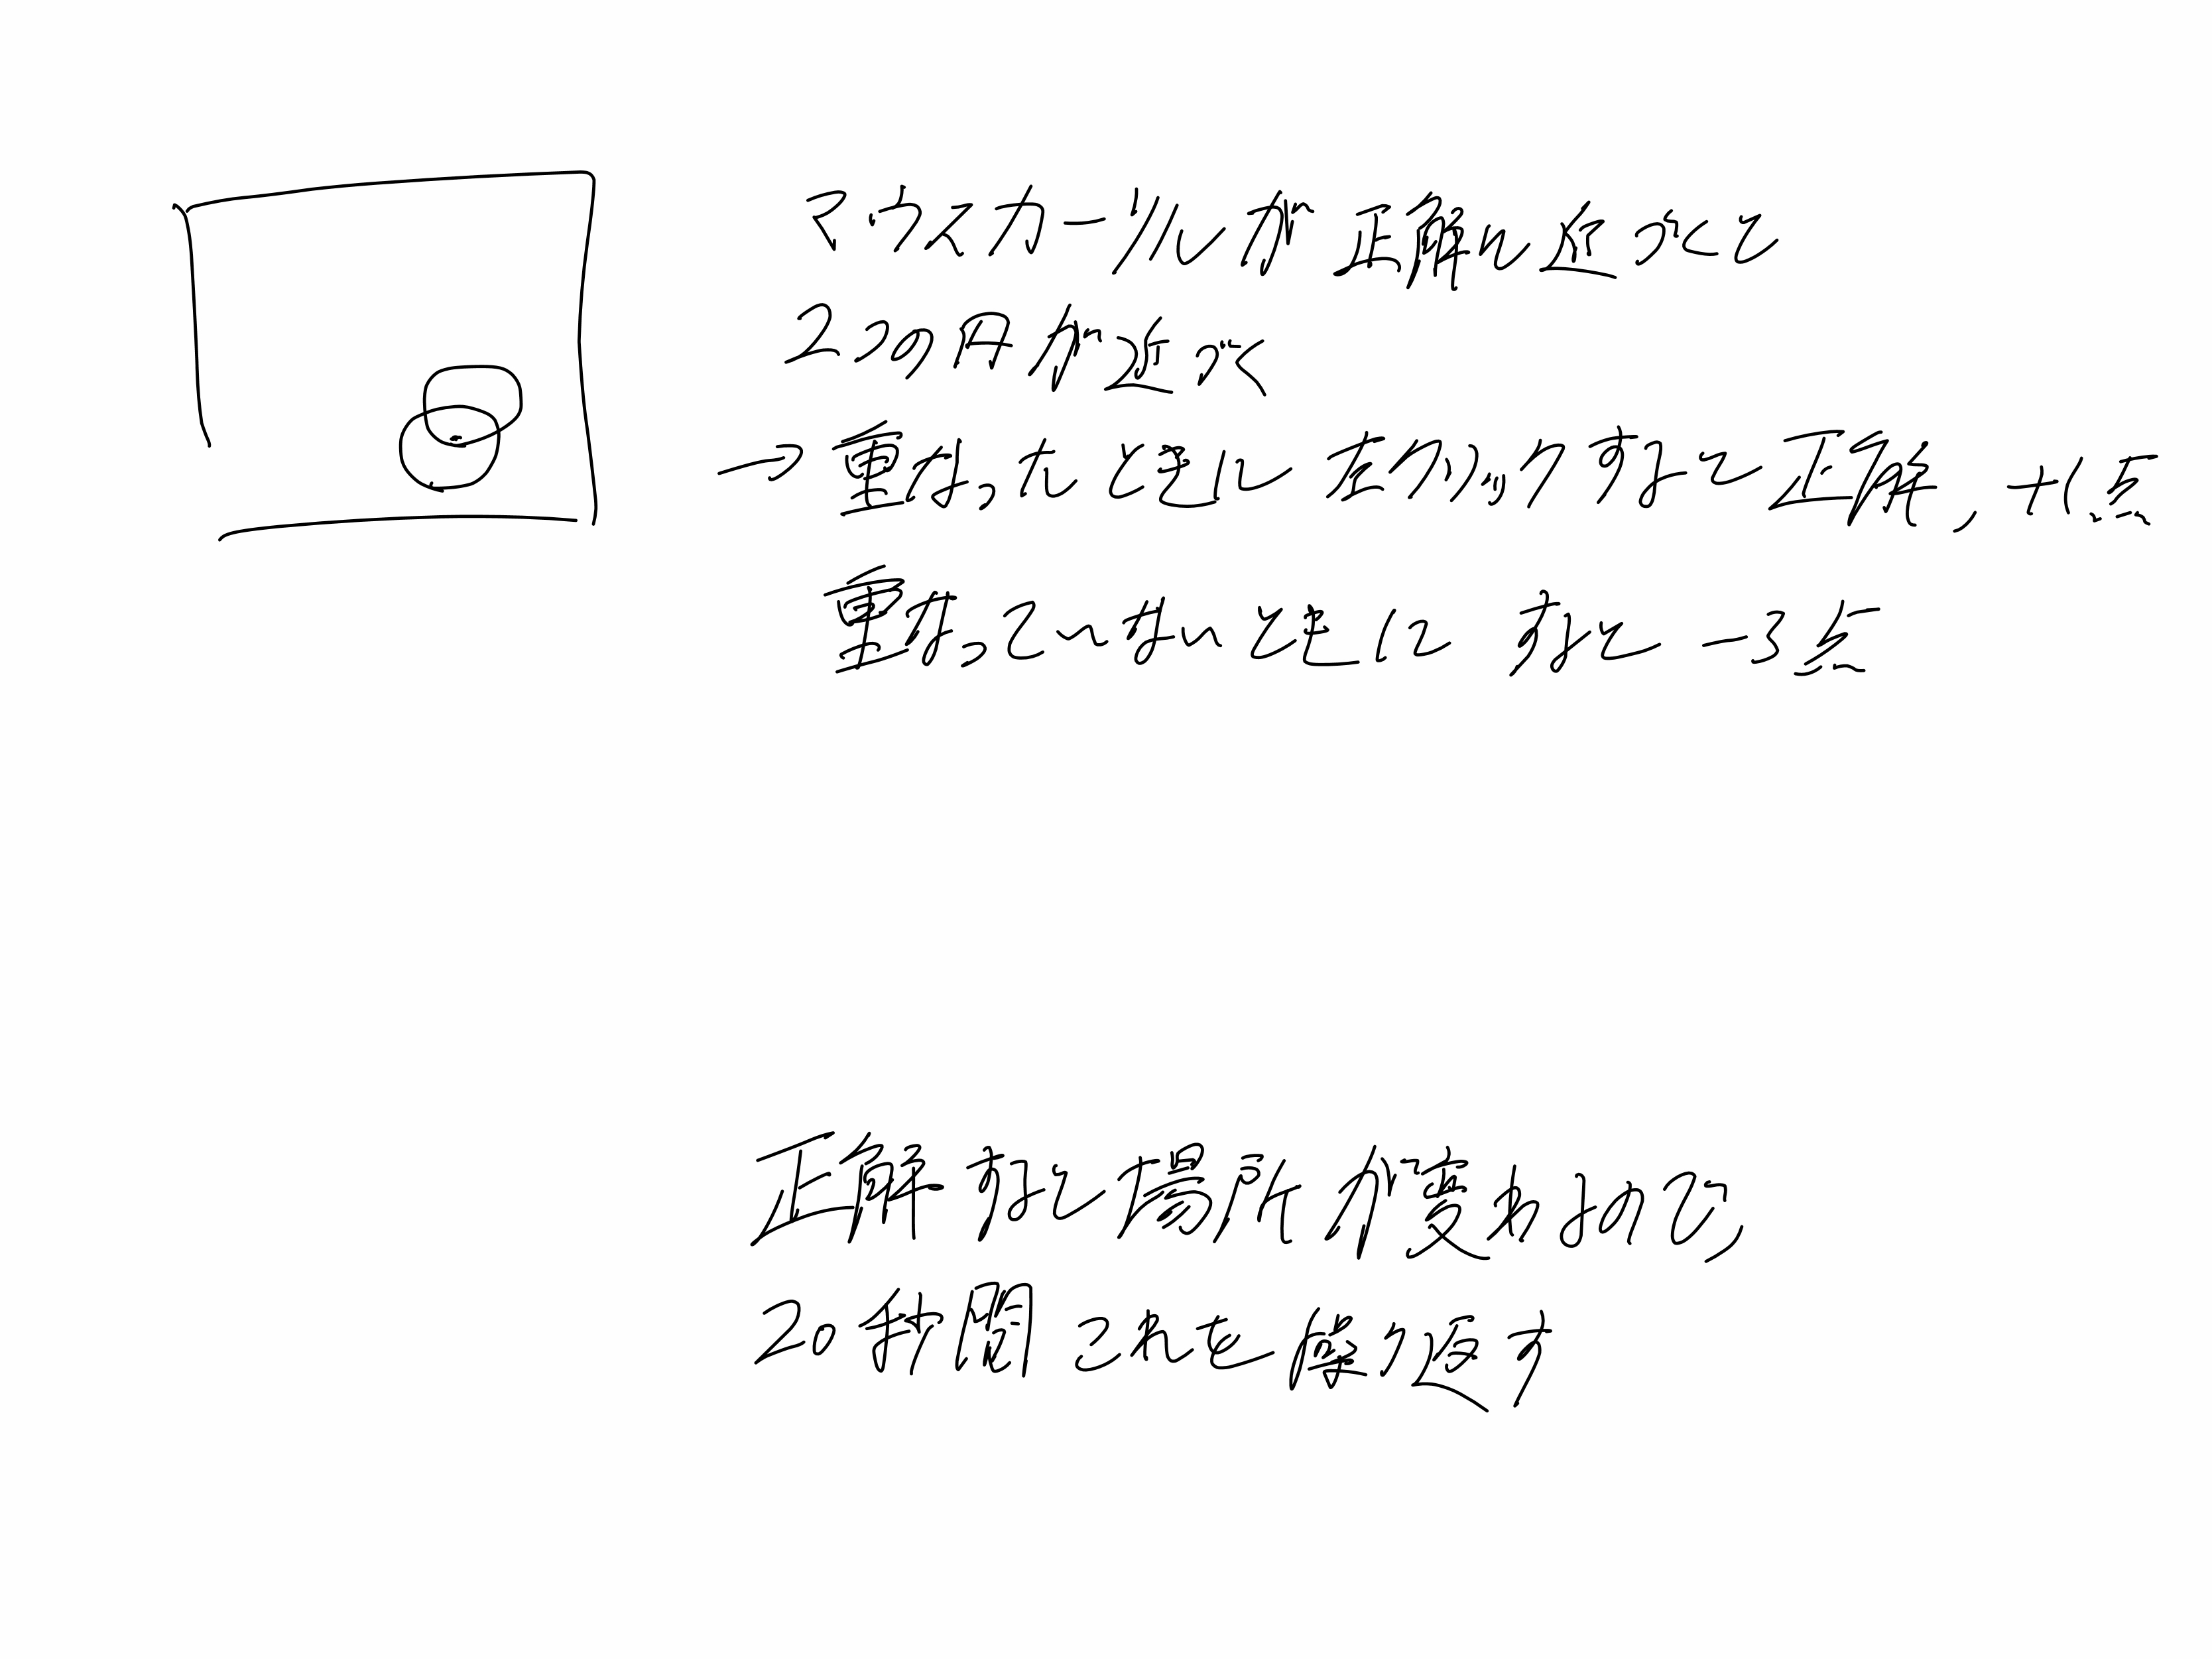 マウスカーソルが正解に近づくと
2つの円が近づく
→重なったときに左クリックすると正解,+1点
重なっていないときに すると -3点
正解すると場所が変わるので,
20秒間これを繰り返す